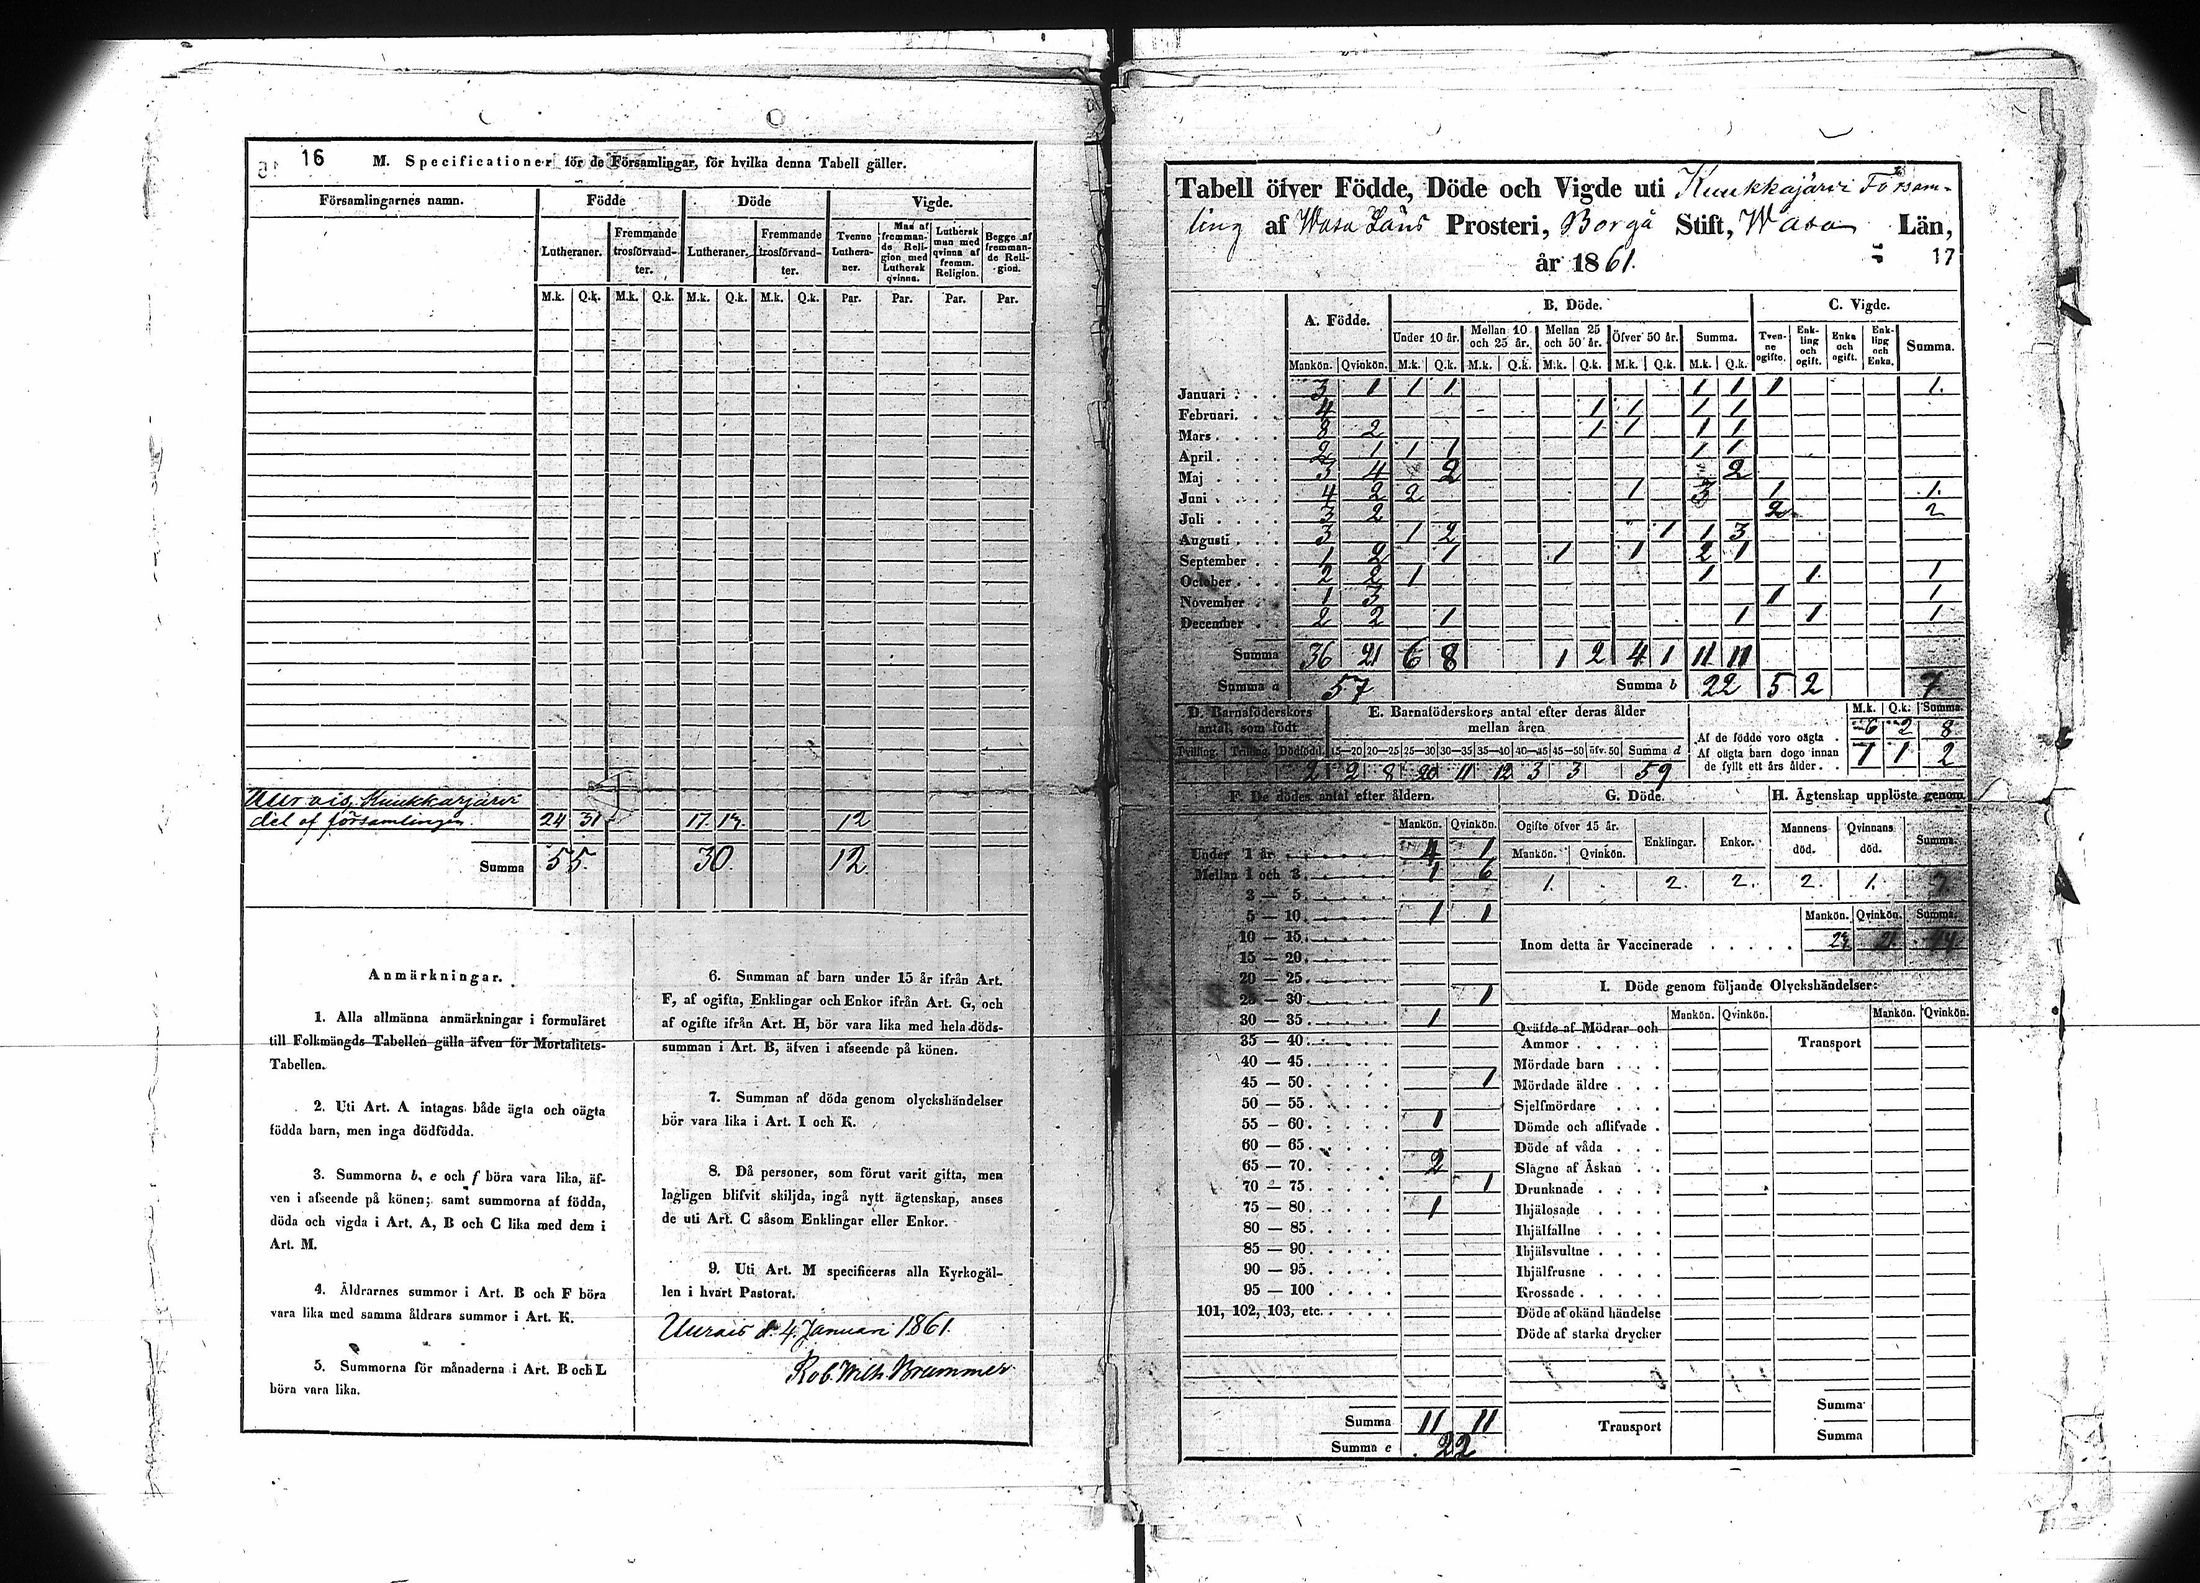 16 M. Specificationer för de Församlingar, för hvilka denna Tabell gäller.
Församlingarnes namn. Födde Döde Vigde.
Lutheraner. Fremmande trosförvandter. Lutheraner. Fremmande trosförvandter. Tvenne Lutheraner. Man af fremmande Religion med Luthersk qvinna. Luthersk man med qvinna af fremm. Religion. Begge af fremmande Religion.
M.k. Q.k. M.k. Q.k. M.k. Q.k. M.k. Q.k. Par. Par. Par. Par.
del af församlingen. 24 31 17. 13. 12
Summa 55. 30. 12
Anmärkningar.
1. Alla allmänna anmärkningar i formuläret
till Folkmängds Tabellen gälla äfven för Mortalitets-
Tabellen.
2. Uti Art. A intagas både ägta och oägta
födda barn, men inga dödfödda.
3. Summorna b, e och f böra vara lika, äf-
ven i afseende på könen; samt summorna af födda,
döda och vigda i Art. A, B och C lika med dem i
Art. M.
4. Åldrarnes summor i Art. B och F böra
vara lika med samma åldrars summor i Art. K.
5. Summorna för månaderna i Art. B och L
böra vara lika.
6. Summan af barn under 15 år ifrån Art.
F, af ogifta, Enklingar och Enkor ifrån Art. G, och
af ogifte ifrån Art. H, bör vara lika med hela döds-
summan i Art. B, äfven i afseende på könen.
7. Summan af döda genom olyckshändelser
bör vara lika i Art. I och K.
8. Då personer, som förut varit gifta, men
lagligen blifvit skiljda, ingå nytt ägtenskap, anses
de uti Art. C såsom Enklingar eller Enkor.
9. Uti Art. M specificeras alla Kyrkogäl-
len i hvart Pastorat.
d. 4 Januari 1861.
Rob. Wilh. Brummer
Tabell öfver Födde, Döde och Vigde uti Kuukkajärvi Försam-
ling af Wasa Läns Prosteri, Borgå Stift, Wasa Län,
år 1861. 17
A. Födde. B. Döde. C. Vigde.
Under 10 år. Mellan 10 och 25 år. Mellan 25 och 50 år. Öfver 50 år. Summa. Tvenne ogifte. Enkling och ogift. Enka och ogift. Enkling och Enka. Summa.
Mankön. Qvinkön. M.k. Q.k. M.k. Q.k. M.k. Q.k. M.k. Q.k. M.k. Q.k.
Januari 3 1 1 1 1 1 1 1.
Februari. 4 1 1 1 1
Mars 8 2 1 1 1 1
April 2 1 1 1 1 1
Maj 3 4 2 2
Juni 4 2 2 1 3 1 1.
Juli 3 2 2 2
Augusti 3 1 2 1 1 3
September 1 2 1 1 1 2 1
October 2 2 1 1 1 1
November 1 3 1 1
December 2 2 1 1 1 1
Summa 36 21 6 8 1 2 4 1 11 11
Summa a 57 Summa b 22 5 2 7
D. Barnaföderskors antal, som födt E. Barnaföderskors antal efter deras ålder mellan åren
Tvilling. Trilling. Dödfödd. 15—20 20—25 25—30 30—35 35—40 40—45 45—50 öfv. 50 Summa d
2 2 8 20 11 12 3 3 59
M.k. Q.k. Summa.
Af de födde voro oägta . 6 2 8
Af oägta barn dogo innan de fyllt ett års ålder . . 1 1 2
F. De dödes antal efter åldern.
Mankön. Qvinkön.
Under 1 år 4 1
Mellan 1 och 3. 1 6
3 — 5.
5 — 10. 1 1
10 — 15.
15 — 20.
20 — 25.
25 — 30. 1
30 — 35. 1
35 — 40.
40 — 45.
45 — 50. 1
50 — 55.
55 — 60. 1
60 — 65.
65 — 70. 2
70 — 75. 1
75 — 80. 1
80 — 85.
85 — 90.
90 — 95.
95 — 100
101, 102, 103, etc.
Summa 11 11
Summa e 22
G. Döde. H. Ägtenskap upplöste genom
Ogifte öfver 15 år. Enklingar. Enkor. Mannens död. Qvinnans död. Summa.
Mankön. Qvinkön.
1. 2. 2. 2. 1.
Mankön. Qvinkön. Summa.
Inom detta år Vaccinerade 21.
I. Döde genom följande Olyckshändelser:
Mankön. Qvinkön. Mankön. Qvinkön.
Qväfde af Mödrar och
Ammor Transport
Mördade barn
Mördade äldre
Sjelfmördare
Dömde och aflifvade
Döde af våda
Slagne af Åskan
Drunknade
Ihjälosade
Ihjälfallne
Ihjälsvultne
Ihjälfrusne
Krossade
Döde af okänd händelse
Döde af starka drycker
Summa
Transport Summa